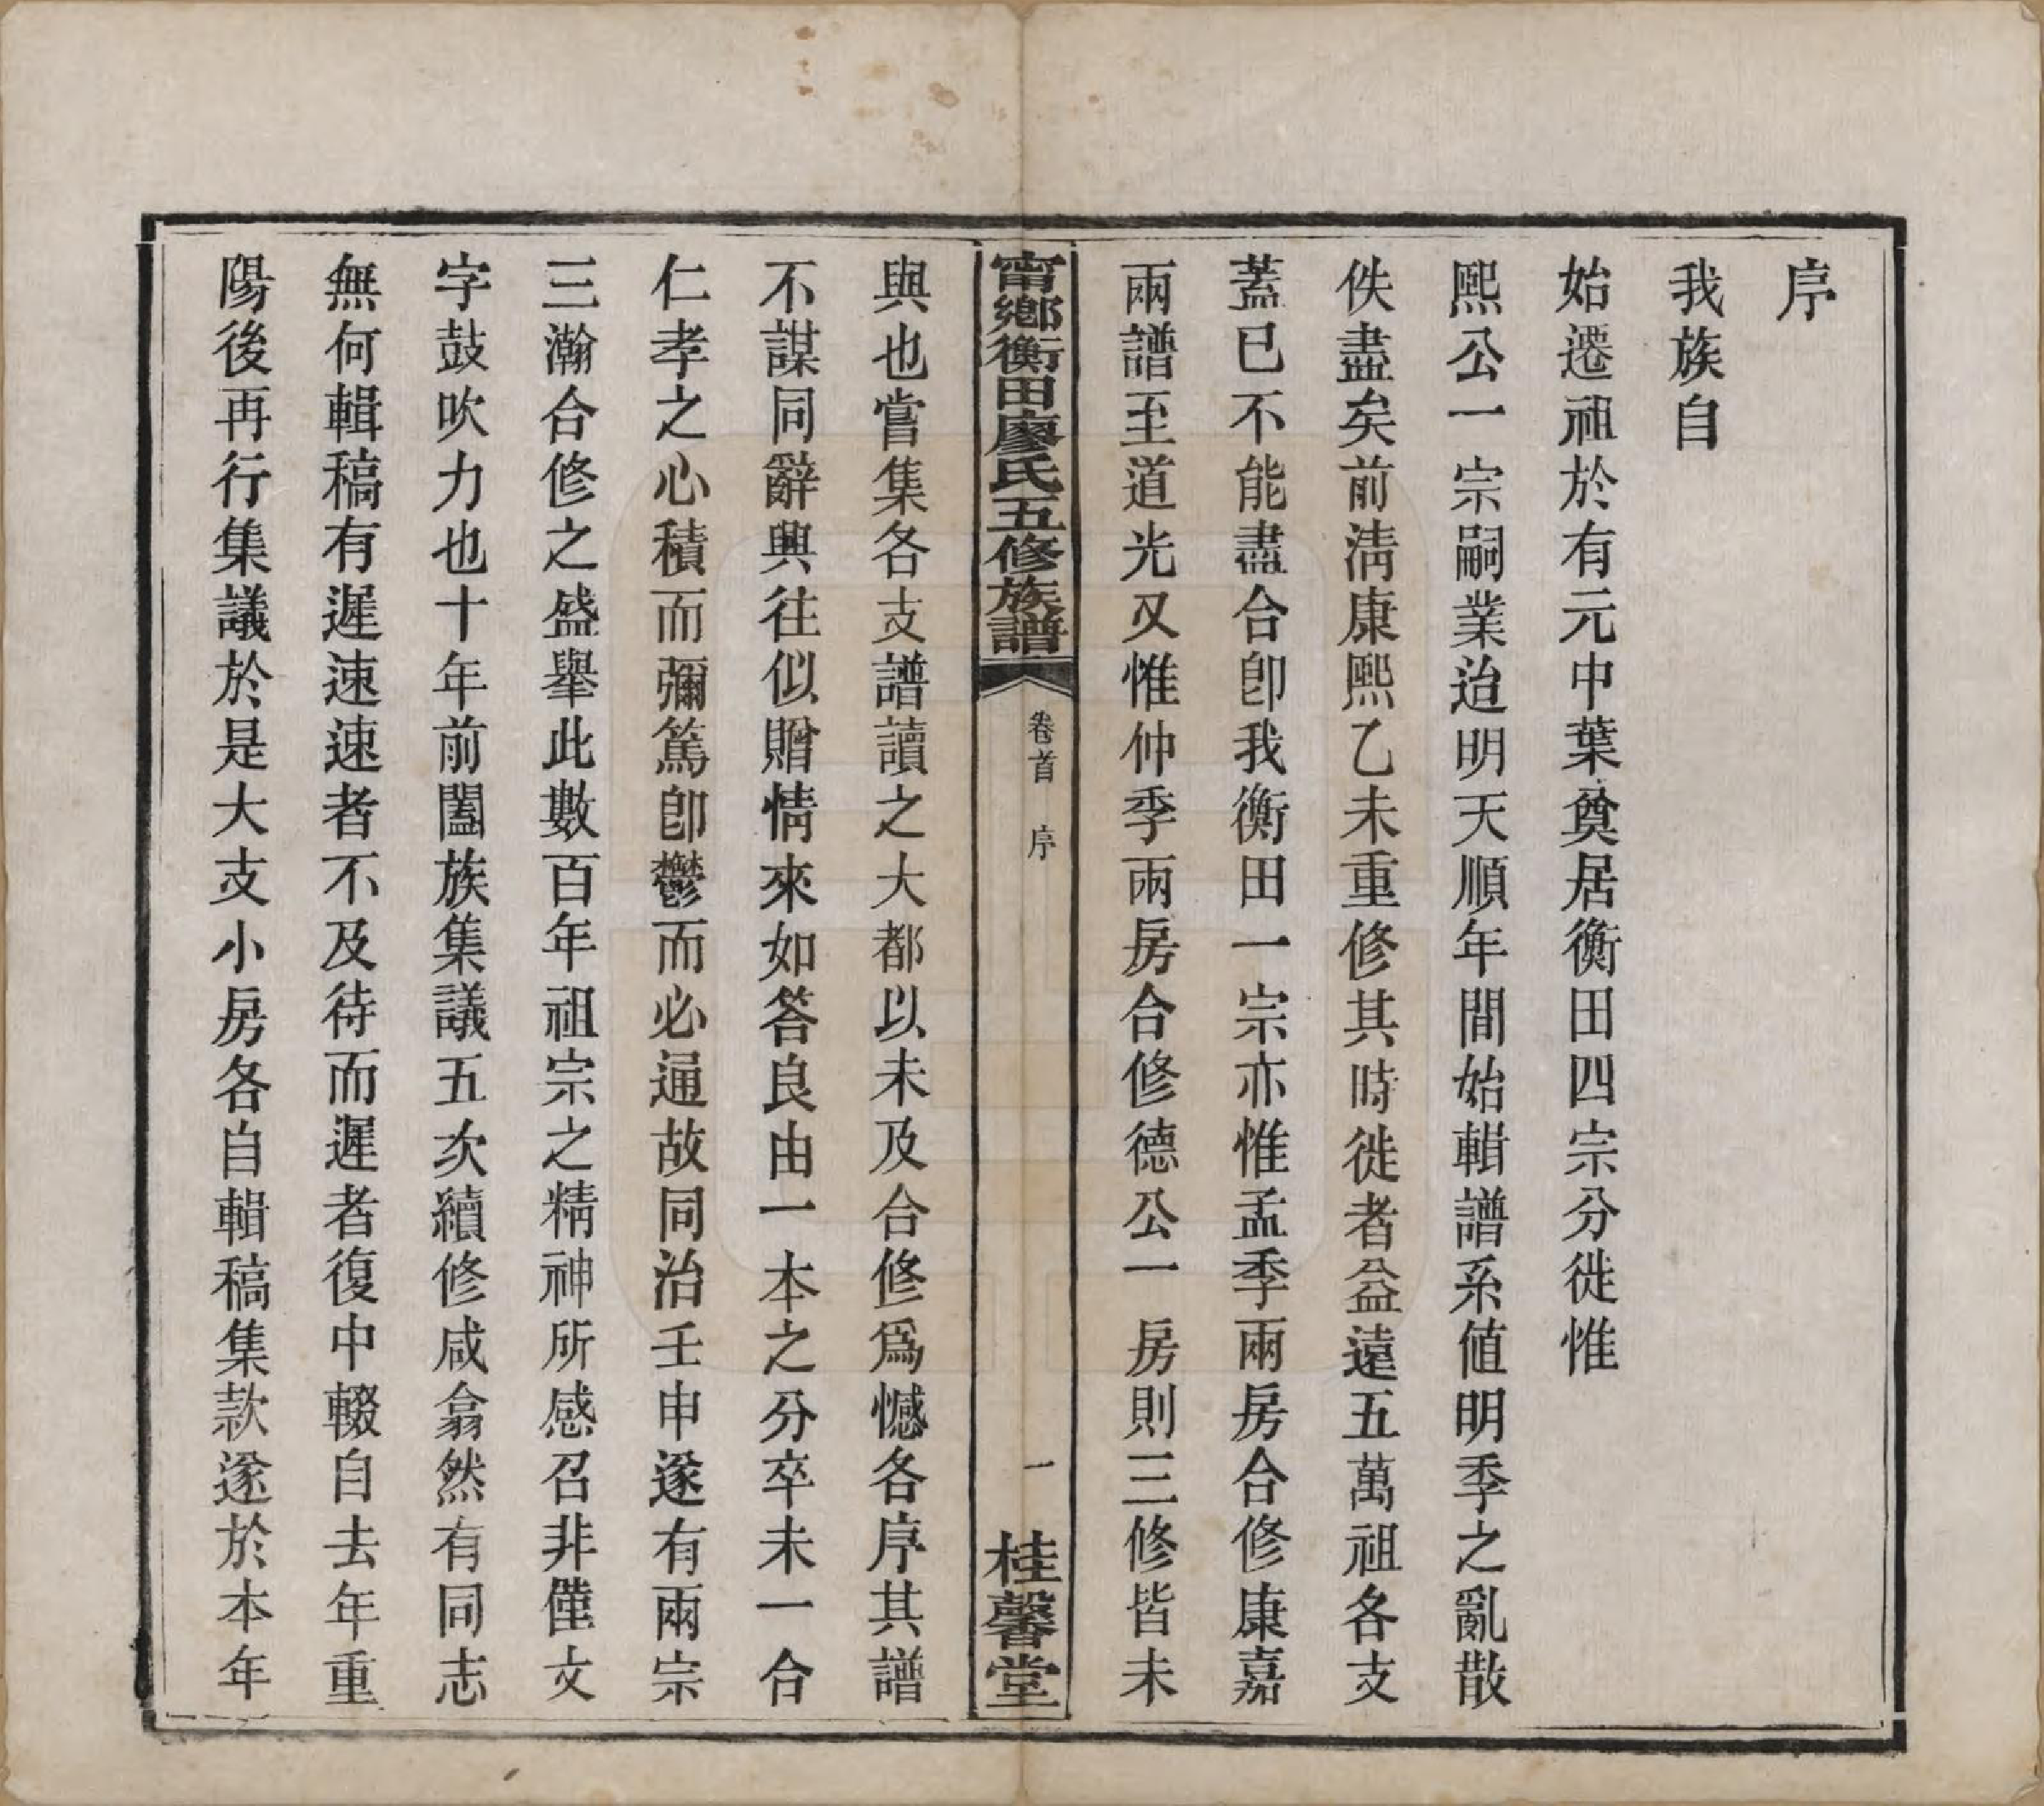 序
我族自
始遷祖於有元中葉奠居衡田四宗分徙惟
熙公一宗嗣業迨明天順年間始輯譜系値明季之亂散
佚盡矣前淸康熙乙未重修其時徙者益遠五萬祖各支
蓋已不能盡合卽我衡田一宗亦惟孟季兩房合修康嘉
兩譜至道光又惟仲季兩房合修德公一房則三修皆未
甯鄉衡田廖氏五修族譜
卷首 序
一
桂馨堂
與也嘗集各支譜讀之大都以未及合修爲憾各序其譜
不謀同辭興往似贈情來如答良由一本之分卒未一合
仁孝之心積而彌篤卽鬱而必通故同治壬申遂有兩宗
三瀚合修之盛舉此數百年祖宗之精神所感召非僅文
字鼓吹力也十年前闔族集議五次續修咸翕然有同志
無何輯稿有遲速速者不及待而遲者復中輟自去年重
陽後再行集議於是大支小房各自輯稿集款遂於本年